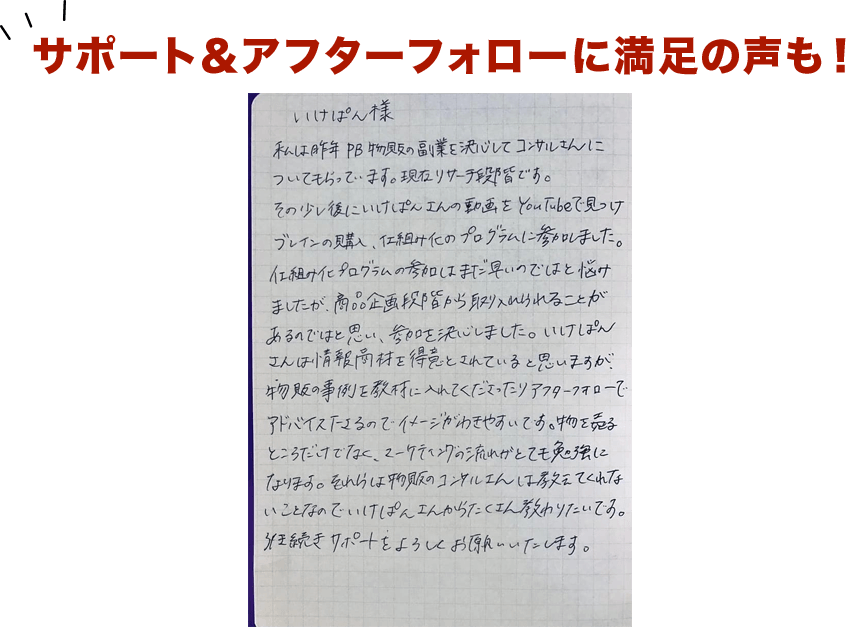 サポート&アフターフォローに満足の声も!
いけぱん様
私は昨年PB物販の副業を決心してコンサルさんに
ついてもらっています。現在リサーチ段階です。
その少し後にいけぱんさんの動画をYouTubeで見つけ
ブレインの購入、仕組み化のプログラムに参加しました。
仕組み化プログラムの参加はまだ早いのではと悩み
ましたが、商品企画段階から取り入れられることが
あるのではと思い、参加を決心しました。いけぱん
さんは情報商材を得意とされていると思いますが、
物販の事例を教材に入れてくださったりアフターフォローで
アドバイス下さるのでイメージがわきやすいです。物を売る
ところだけでなく、マーケティングの流れがとても勉強に
なります。それらは物販のコンサルさんは教えてくれな
いことなのでいけぱんさんからたくさん教わりたいです。
引き続きサポートをよろしくお願いいたします。